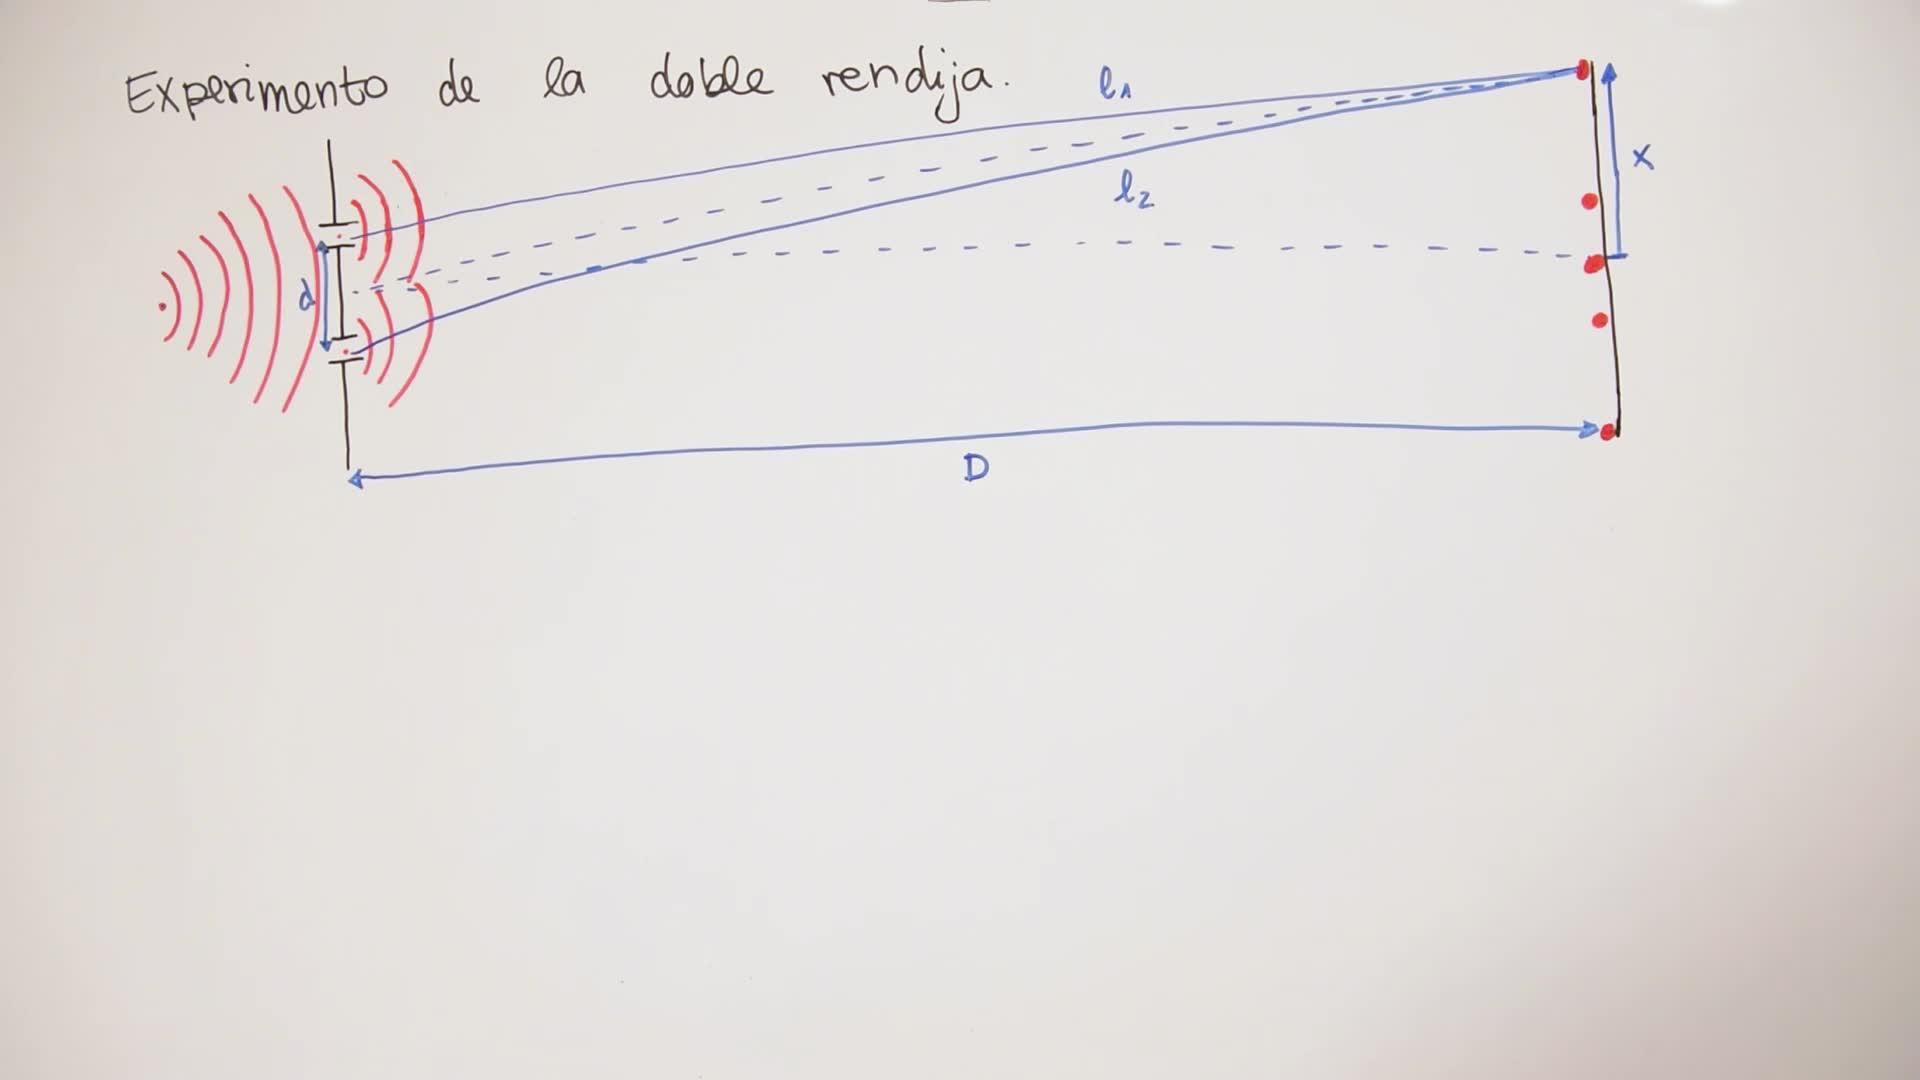 Experimento de la doble rendija.
l1
x
l2
d
D